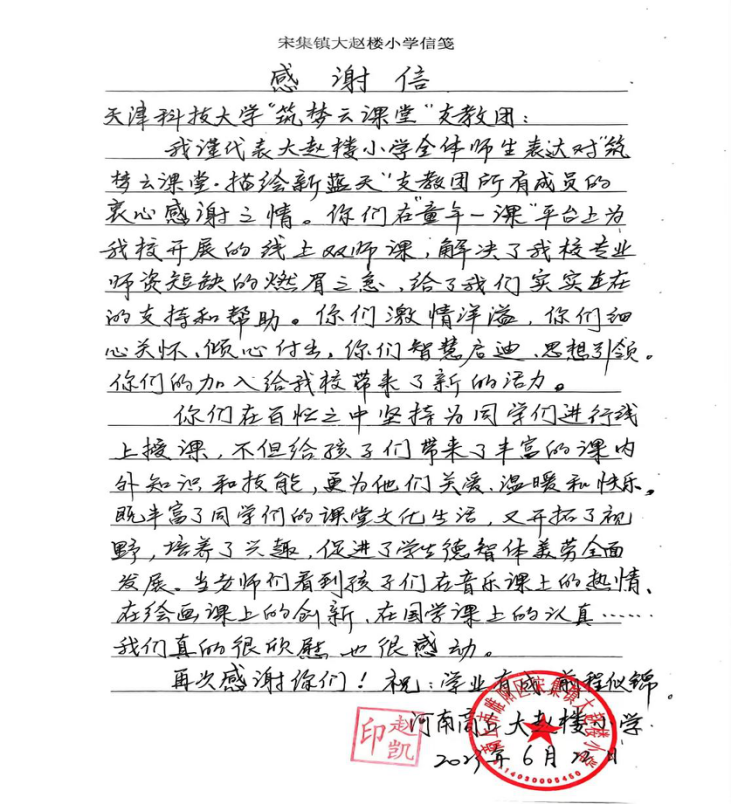 宋集镇大赵楼小学信笺
感谢信
天津科技大学“筑梦云课堂”支教团：
我谨代表大赵楼小学全体师生表达对“筑
梦云课堂·描绘新蓝天”支教团所有成员的
衷心感谢之情。你们在“童年一课”平台上为
我校开展的线上双师课，解决了我校专业
师资短缺的燃眉之急，给了我们实实在在
的支持和帮助。你们激情洋溢，你们细
心关怀、倾心付出，你们智慧启迪、思想引领。
你们的加入给我校带来了新的活力。
你们在百忙之中坚持为同学们进行线
上授课，不但给孩子们带来了丰富的课内
外知识和技能，更为他们关爱、温暖和快乐。
既丰富了同学们的课堂文化生活，又开拓了视
野，培养了兴趣，促进了学生德智体美劳全面
发展。当老师们看到孩子们在音乐课上的热情、
在绘画课上的创新、在国学课上的认真……
我们真的很欣慰也很感动。
再次感谢你们！祝：学业有成 前程似锦。
河南商丘大赵楼小学
2023年6月 日
赵凯印
商丘市睢阳区宋集镇大赵楼小学